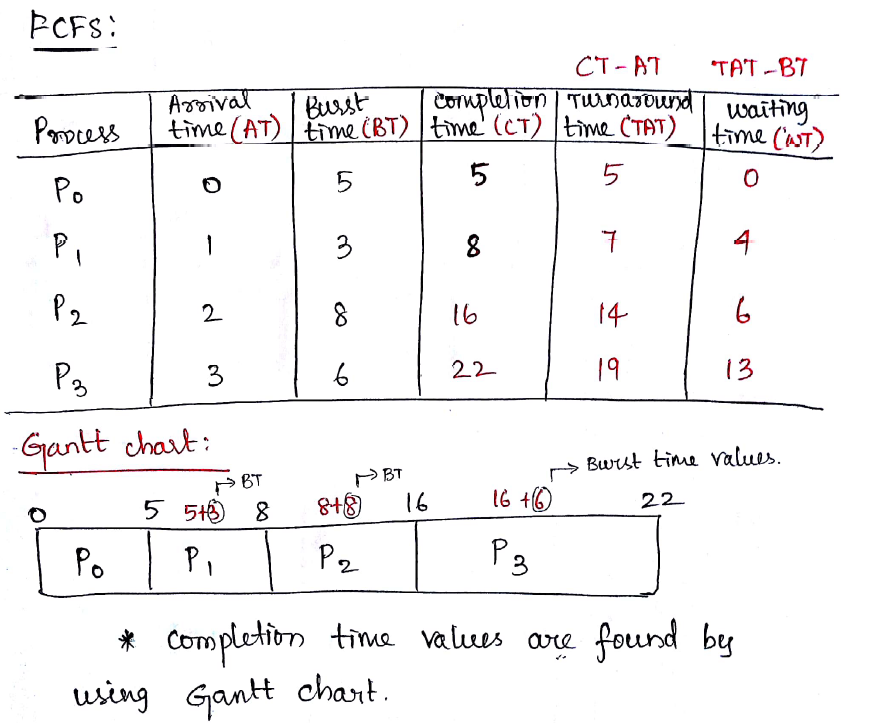 FCFS:
CT-AT TAT-BT
Process Arrival time (AT) Burst time (BT) completion time (CT) Turnaround time (TAT) waiting time (WT)
P0 0 5 5 5 0
P1 1 3 8 7 4
P2 2 8 16 14 6
P3 3 6 22 19 13
Gantt chart:
BT BT Burst time values.
0 5 5+3 8 8+8 16 16+6 22
P0 P1 P2 P3
* completion time values are found by
using Gantt chart.